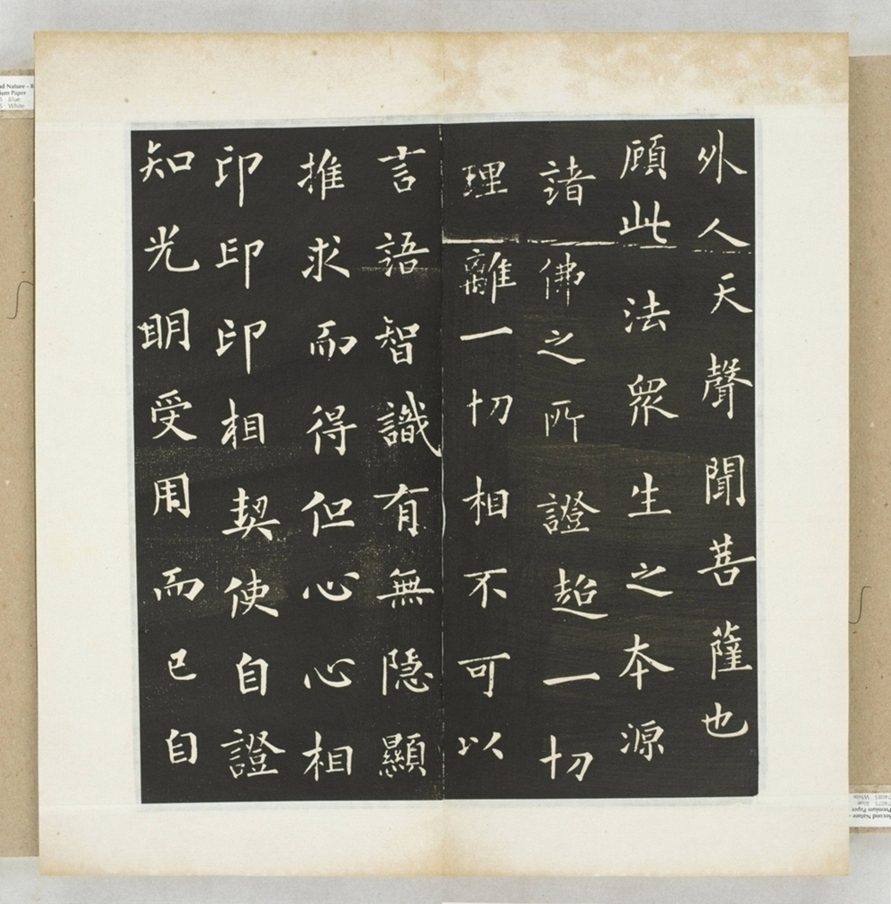 外人天聲聞菩薩也
顧此法衆生之本源
諸佛之所證超一切
理離一切相不可以
言語智識有無隱顯
推求而得但心心相
印印印相契使自證
知光明受用而已自